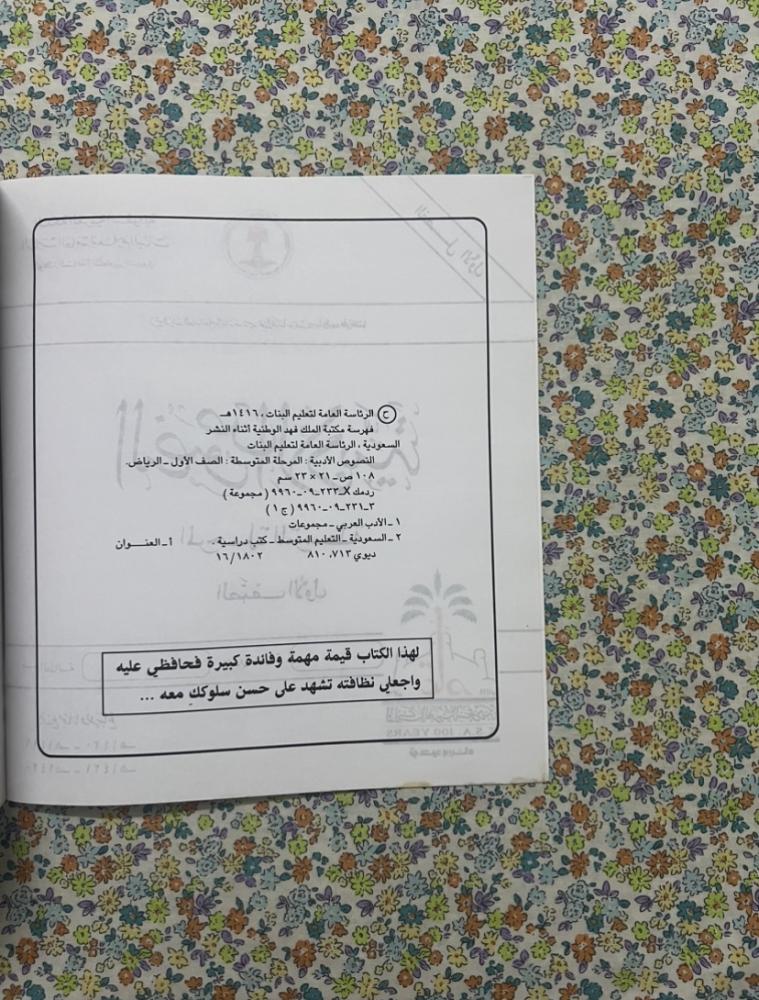 ح الرئاسة العامة لتعليم البنات ، ١٤١٦هـ
فهرسة مكتبة الملك فهد الوطنية أثناء النشر
السعودية ، الرئاسة العامة لتعليم البنات
النصوص الأدبية : المرحلة المتوسطة : الصف الأول ـ الرياض.
١٠٨ ص ـ ٢١ × ٢٣ سم
ردمك X ـ ٢٣٣ ـ ٠٩ ـ ٩٩٦٠ ( مجموعة )
٣ ـ ٢٣١ ـ ٠٩ ـ ٩٩٦٠ ( ج ١ )
١ ـ الأدب العربي ـ مجموعات
٢ ـ السعودية ـ التعليم المتوسط ـ كتب دراسية . أ ـ العنـــوان
ديوي ٨١٠,٧١٣ ١٦/١٨٠٢
لهذا الكتاب قيمة مهمة وفائدة كبيرة فحافظي عليه
واجعلي نظافته تشهد على حسن سلوككِ معه ...
الصف الأول
S.A: 100 YEARS